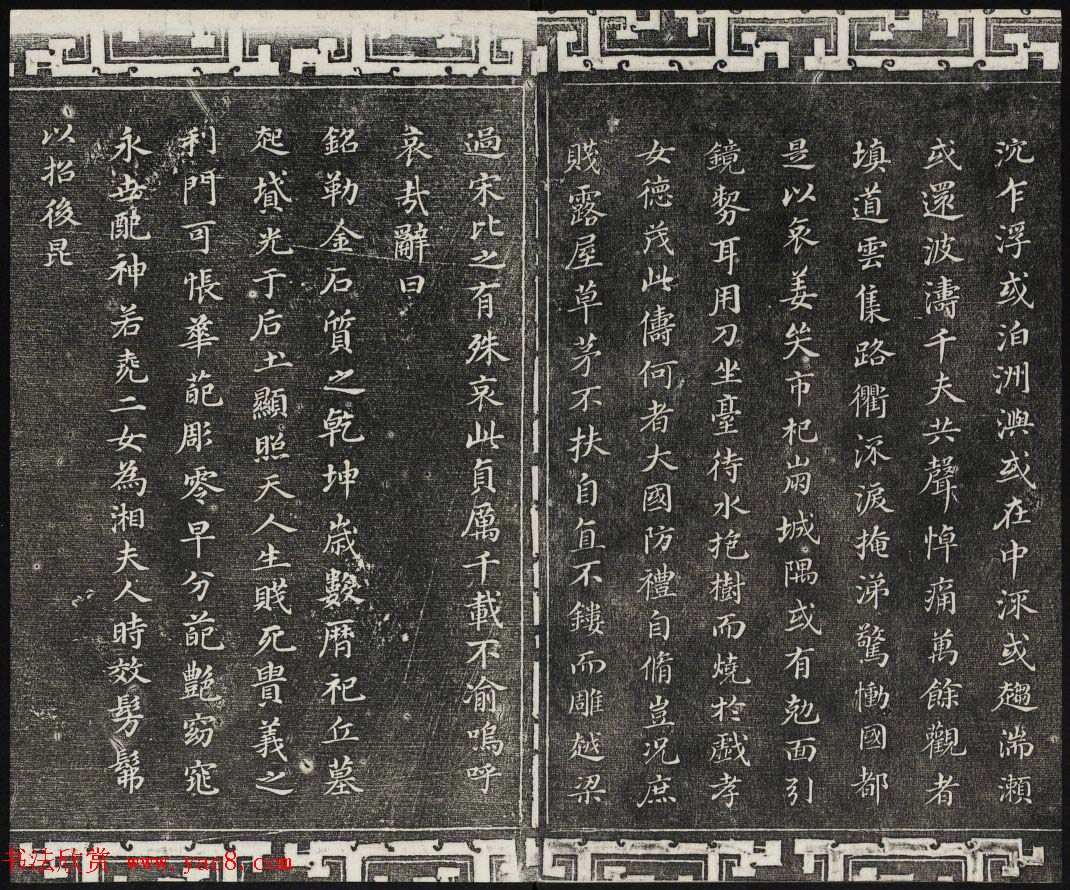 沈乍浮或泊洲澳或在中流或趨湍瀨
或還波濤千夫共聲悼痛萬餘觀者
填道雲集路衢流淚掩涕驚慟國都
是以哀姜哭市杞崩城隅或有剋面引
鏡剺耳用刀坐臺待水抱樹而燒於戲孝
女德茂此儔何者大國防禮自脩豈況庶
賤露屋草茅不扶自直不鏤而雕越梁
過宋比之有殊哀此貞厲千載不渝嗚呼
哀哉辭曰
銘勒金石質之乾坤歲數曆祀丘墓
起墳光于后土顯照天人生賤死貴義之
利門可悵華葩彫零早分葩艷窈窕
永世配神若堯二女為湘夫人時效髣髴
以招後昆
书法欣赏 www.yac8.com